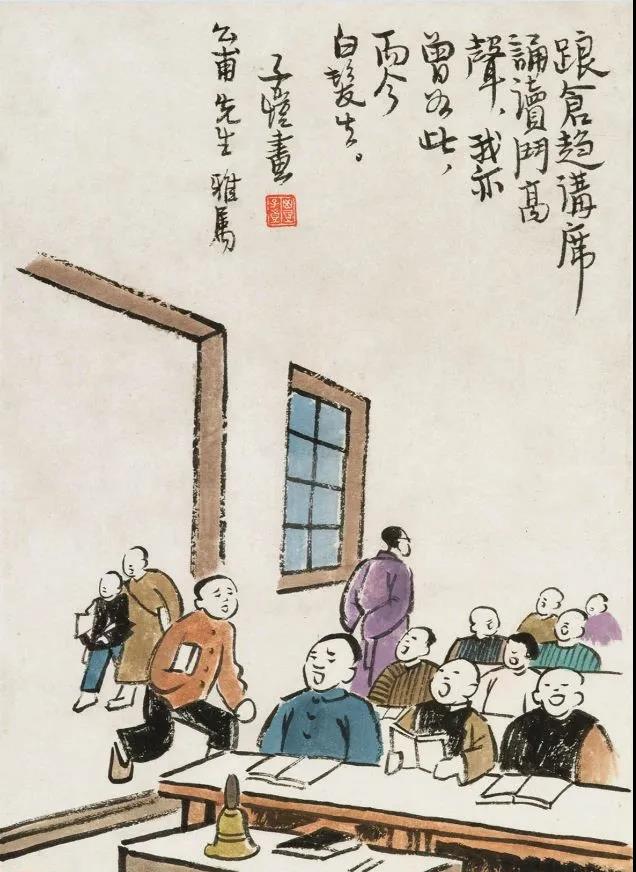 踉倉趨講席
誦讀鬥高
聲,我亦
曾如此,
而今
白髮生。
子愷畫
公甫先生雅屬